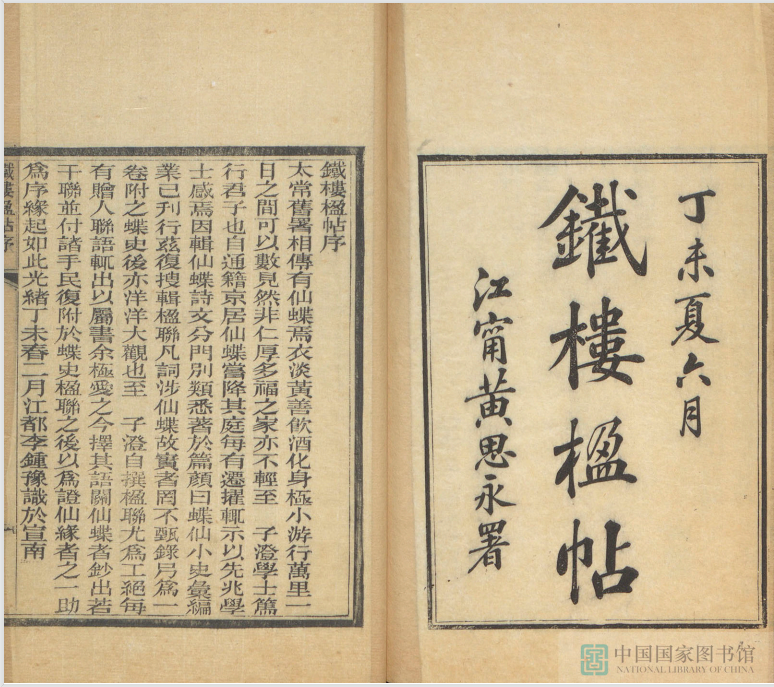 丁未夏六月
鐵樓楹帖
江甯黃思永署
鐵樓楹帖序
太常舊署相傳有仙蝶焉衣淡黃善飮酒化身極小游行萬里一
日之間可以數見然非仁厚多福之家亦不輕至　子澄學士篤
行君子也自通籍京居仙蝶嘗降其庭每有遷擢輒示以先兆學
士感焉因輯仙蝶詩文分門別類悉著於篇顏曰蝶仙小史彙編
業已刊行茲復搜輯楹聯凡詞涉仙蝶故實者罔不甄錄另爲一
卷附之蝶史後亦洋洋大觀也至　子澄自撰楹聯尤爲工絕每
有贈人聯語輒出以屬書余極愛之今擇其語關仙蝶者鈔出若
干聯並付諸手民復附於蝶史楹聯之後以爲證仙緣者之一助
爲序緣起如此光緒丁未春二月江都李鍾豫識於宣南
鐵樓楹帖序
中国国家图书馆
NATIONAL LIBRARY OF CHINA